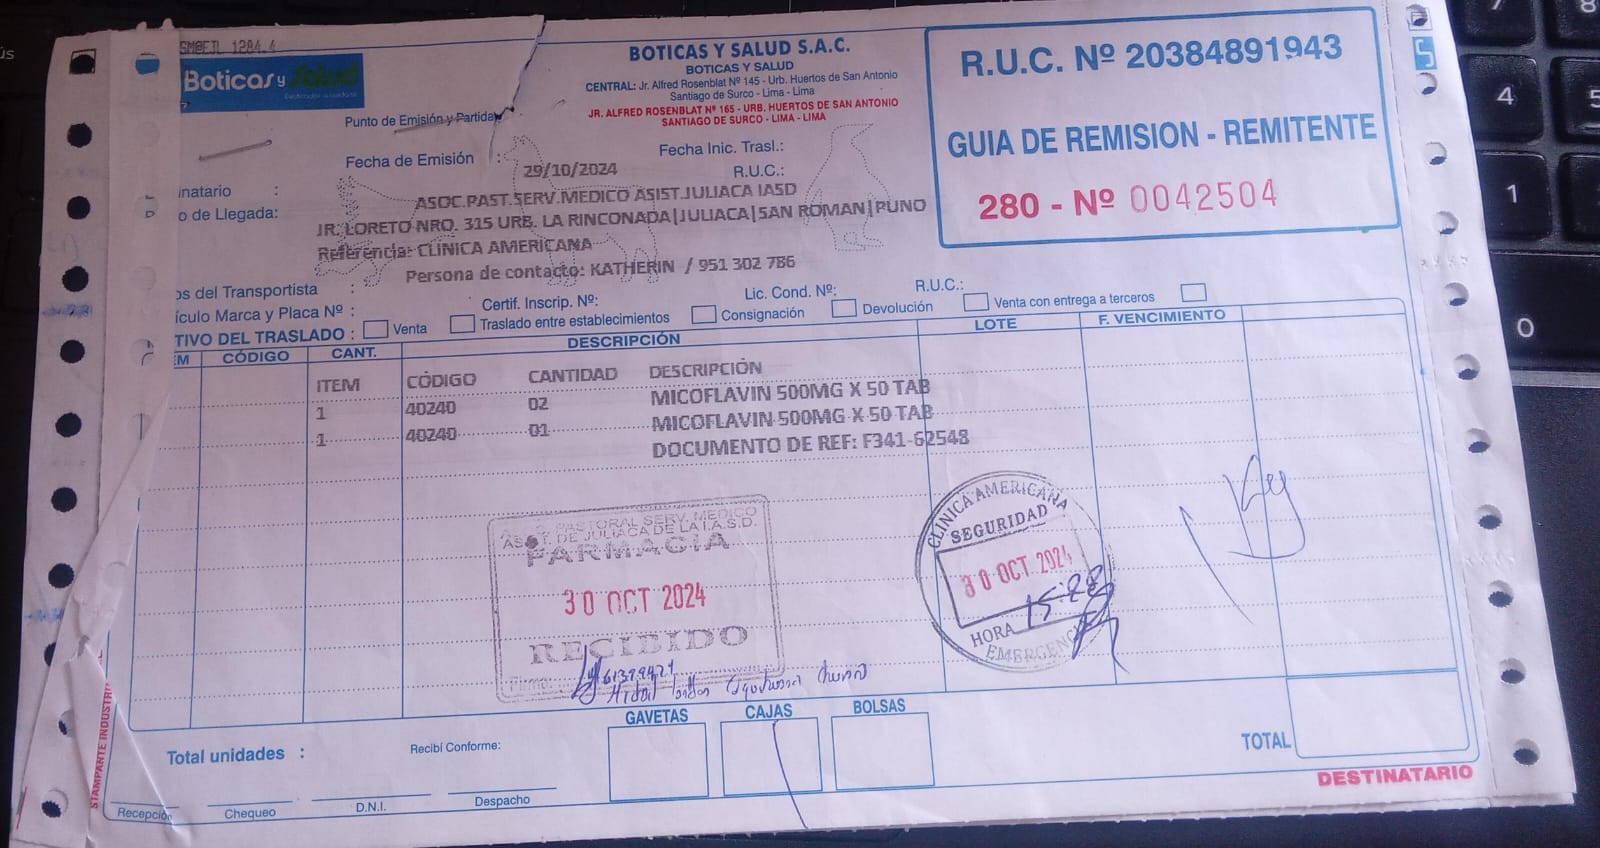 SM@EJL 1284.4
Boticas y Salud
BOTICAS Y SALUD S.A.C.
BOTICAS Y SALUD
CENTRAL: Jr. Alfred Rosenblat Nº 145 - Urb. Huertos de San Antonio
Santiago de Surco - Lima - Lima
JR. ALFRED ROSENBLAT Nº 165 - URB. HUERTOS DE SAN ANTONIO
SANTIAGO DE SURCO - LIMA - LIMA
R.U.C. Nº 20384891943
GUIA DE REMISION - REMITENTE
280 - Nº 0042504
Punto de Emisión y Partida
Fecha de Emisión : 29/10/2024 Fecha Inic. Trasl.:
R.U.C.:
inatario : ASOC.PAST.SERV.MEDICO ASIST.JULIACA IASD
o de Llegada: JR. LORETO NRO. 315 URB. LA RINCONADA|JULIACA|SAN ROMAN|PUNO
Referencia: CLINICA AMERICANA
Persona de contacto: KATHERIN / 951 302 786
os del Transportista :
ículo Marca y Placa Nº : Certif. Inscrip. Nº: Lic. Cond. Nº: R.U.C.:
TIVO DEL TRASLADO : Venta Traslado entre establecimientos Consignación Devolución Venta con entrega a terceros
EM CÓDIGO CANT. DESCRIPCIÓN LOTE F. VENCIMIENTO
ITEM CÓDIGO CANTIDAD DESCRIPCIÓN
1 40240 02 MICOFLAVIN 500MG X 50 TAB
1 40240 01 MICOFLAVIN 500MG X 50 TAB
DOCUMENTO DE REF: F341-62548
PASTORAL SERV. MEDICO
ASIST. DE JULIACA DE LA I.A.S.D.
FARMACIA
30 OCT 2024
RECIBIDO
Firma:
CLINICA AMERICANA
SEGURIDAD
30 OCT 2024
HORA 15:28
EMERGENCIA
GAVETAS CAJAS BOLSAS
Total unidades : Recibí Conforme: TOTAL
Recepción Chequeo D.N.I. Despacho
DESTINATARIO
STAMPANTE INDUSTRI